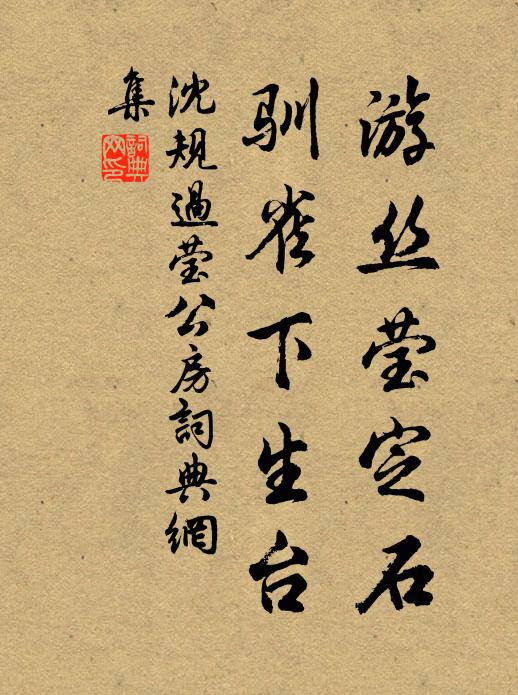 游丝莹定石
驯雀下生台
沈规過莹公房詞典網
集
詞典
网印